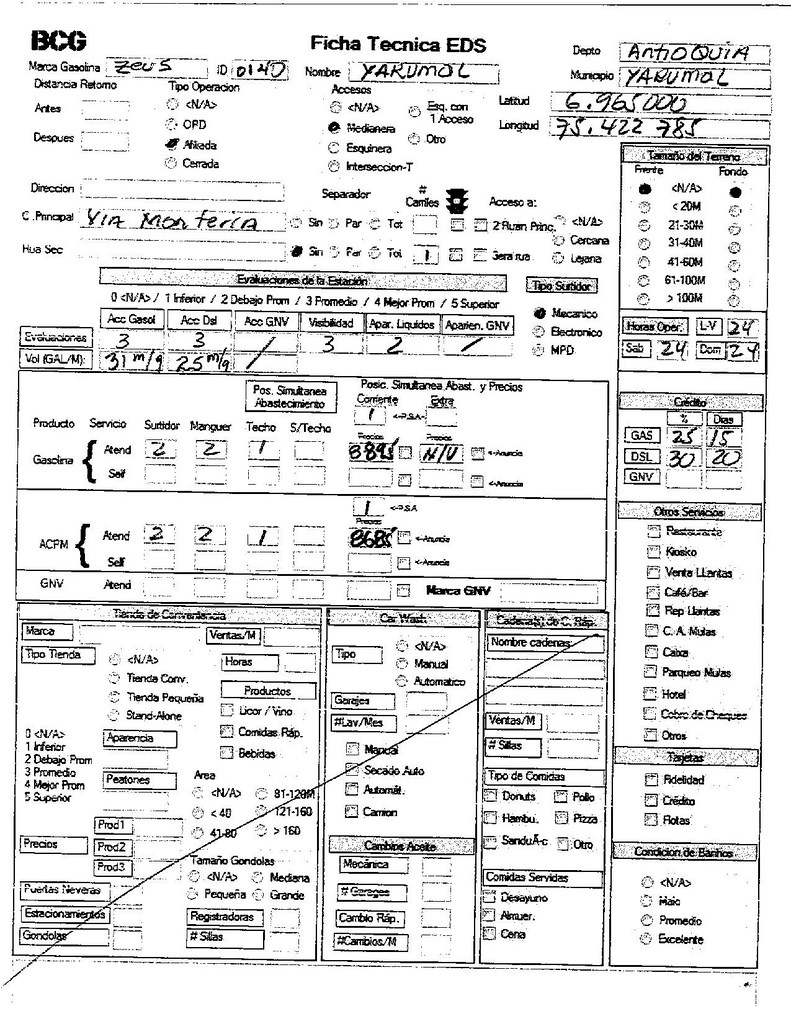 BCG Ficha Tecnica EDS Depto ANTIOQUIA
Marca Gasolina ZEUS ID 0140 Nombre YARUMAL Municipio YARUMAL
Distancia Retorno Tipo Operacion Accesos Latitud 6.965000
Antes <N/A> <N/A> Esq. con 1 Acceso Longitud 75.422 785
OPD Medianera Otro
Despues Afiliada Esquinera
Cerrada Interseccion-T
Tamaño del Terreno
Frente Fondo
<N/A>
< 20M
21-30M
31-40M
41-60M
61-100M
> 100M
Direccion Separador # Carriles Acceso a:
C .Principal VIA Monteria Sin Par Tot 2 Ruan Princ. <N/A>
Cercana
Hua Sec Sin Par Tot 1 Sera rua Lejana
Evaluaciones de la Estación Tipo Surtidor
0 <N/A> / 1 Inferior / 2 Debajo Prom / 3 Promedio / 4 Mejor Prom / 5 Superior Mecanico
Acc Gasol Acc Dsl Acc GNV Visibilidad Apar. Liquidos Aparien. GNV Electronico
Evaluaciones 3 3 / 3 2 / MPD
Vol (GAL/M): 31 m/g 25 m/g
Horas Oper. L-V 24
Sab 24 Dom 24
Pos. Simultanea Abastecimiento Posic. Simultanea Abast. y Precios
Corriente Extra
1 <-P.S.A-
Producto Servicio Surtidor Manguer Techo S/Techo Precios Precios
Gasolina Atend 2 2 1 8895 N/U <-Anuncia
Self <-Anuncia
1 <-P.S.A
Precios
ACPM Atend 2 2 1 8685 <-Anuncia
Self <-Anuncia
GNV Atend Marca GNV
Crédito
% Dias
GAS 25 15
DSL 30 20
GNV
Otros Servicios
Restaurante
Kiosko
Venta Llantas
Café/Bar
Rep Llantas
C. A. Mulas
Caixa
Parqueo Mulas
Hotel
Cobro de Cheques
Otros
Tarjetas
Fidelidad
Crédito
Flotas
Condicion de Baños
<N/A>
Malo
Promedio
Excelente
Tienda de Conveniencia
Marca Ventas/M
Tipo Tienda <N/A> Horas
Tienda Conv.
Tienda Pequeña Productos
Stand-Alone Licor / Vino
0 <N/A> Aparencia Comidas Ráp.
1 Inferior Bebidas
2 Debajo Prom
3 Promedio Peatones Area
4 Mejor Prom <N/A> 81-120M
5 Superior < 40 121-160
Prod1 41-80 > 160
Precios Prod2
Prod3 Tamaño Gondolas
<N/A> Mediana
Puertas Neveras Pequeña Grande
Estacionamientos Registradoras
Gondolas # Sillas
Car Wash
Tipo <N/A>
Manual
Automatico
Garajes
#Lav/Mes
Manual
Secado Auto
Automát.
Camion
Cambios Aceite
Mecánica
# Garages
Cambio Ráp.
#Cambios/M
Cadena(s) de C. Ráp.
Nombre cadenas
Ventas/M
# Sillas
Tipo de Comidas
Donuts Pollo
Hambu. Pizza
SanduÃ-c Otro
Comidas Servidas
Desayuno
Almuer.
Cena